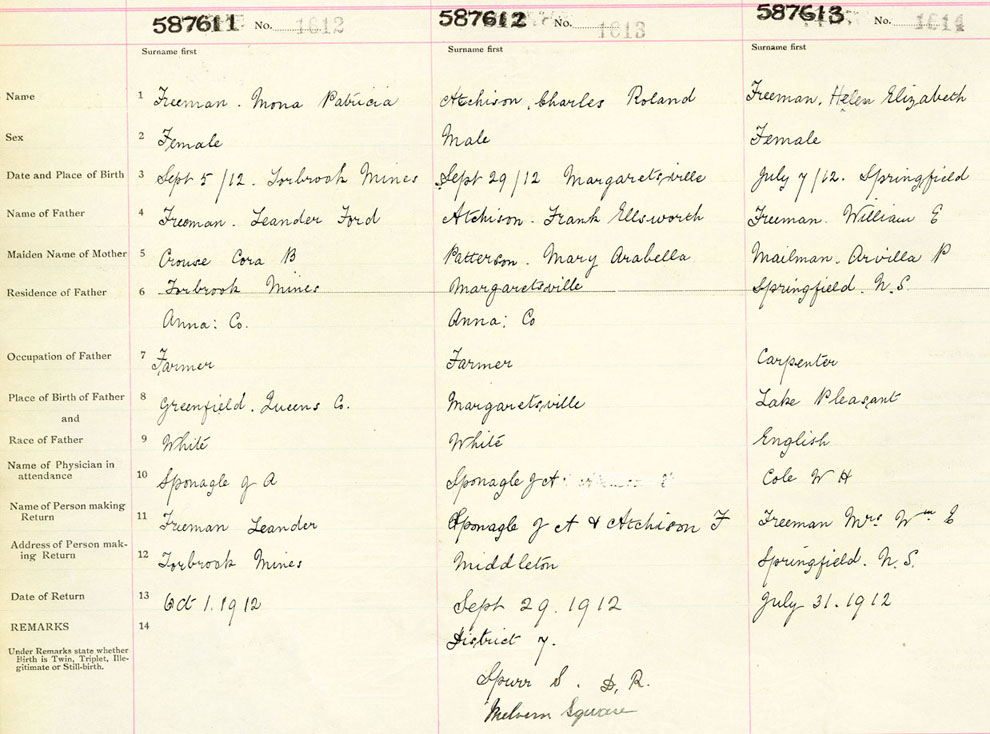 587611 No. 1612 587612 No. 1613 587613 No. 1614
Surname first Surname first Surname first
Name 1 Freeman. Mona Patricia Atchison, Charles Roland Freeman, Helen Elizabeth
Sex 2 Female Male Female
Date and Place of Birth 3 Sept 5/12. Torbrook Mines Sept 29/12 Margaretsville July 7/12. Springfield
Name of Father 4 Freeman. Leander Ford Atchison. Frank Ellsworth Freeman. William E
Maiden Name of Mother 5 Crouse Cora B Patterson. Mary Arabella Mailman. Arvilla P
Residence of Father 6 Torbrook Mines Margaretsville Springfield. N.S.
Anna: Co. Anna: Co
Occupation of Father 7 Farmer Farmer Carpenter
Place of Birth of Father 8 Greenfield. Queens Co. Margaretsville Lake Pleasant
and
Race of Father 9 White White English
Name of Physician in
attendance 10 Sponagle J A Sponagle J A Cole W H
Name of Person making
Return 11 Freeman Leander Sponagle J A & Atchison F Freeman Mrs Wm E
Address of Person mak-
ing Return 12 Torbrook Mines Middleton Springfield. N.S.
Date of Return 13 Oct 1. 1912 Sept 29. 1912 July 31. 1912
REMARKS 14 District 7.
Under Remarks state whether
Birth is Twin, Triplet, Ille-
gitimate or Still-birth.
Spurr S. D. R.
Melvern Square